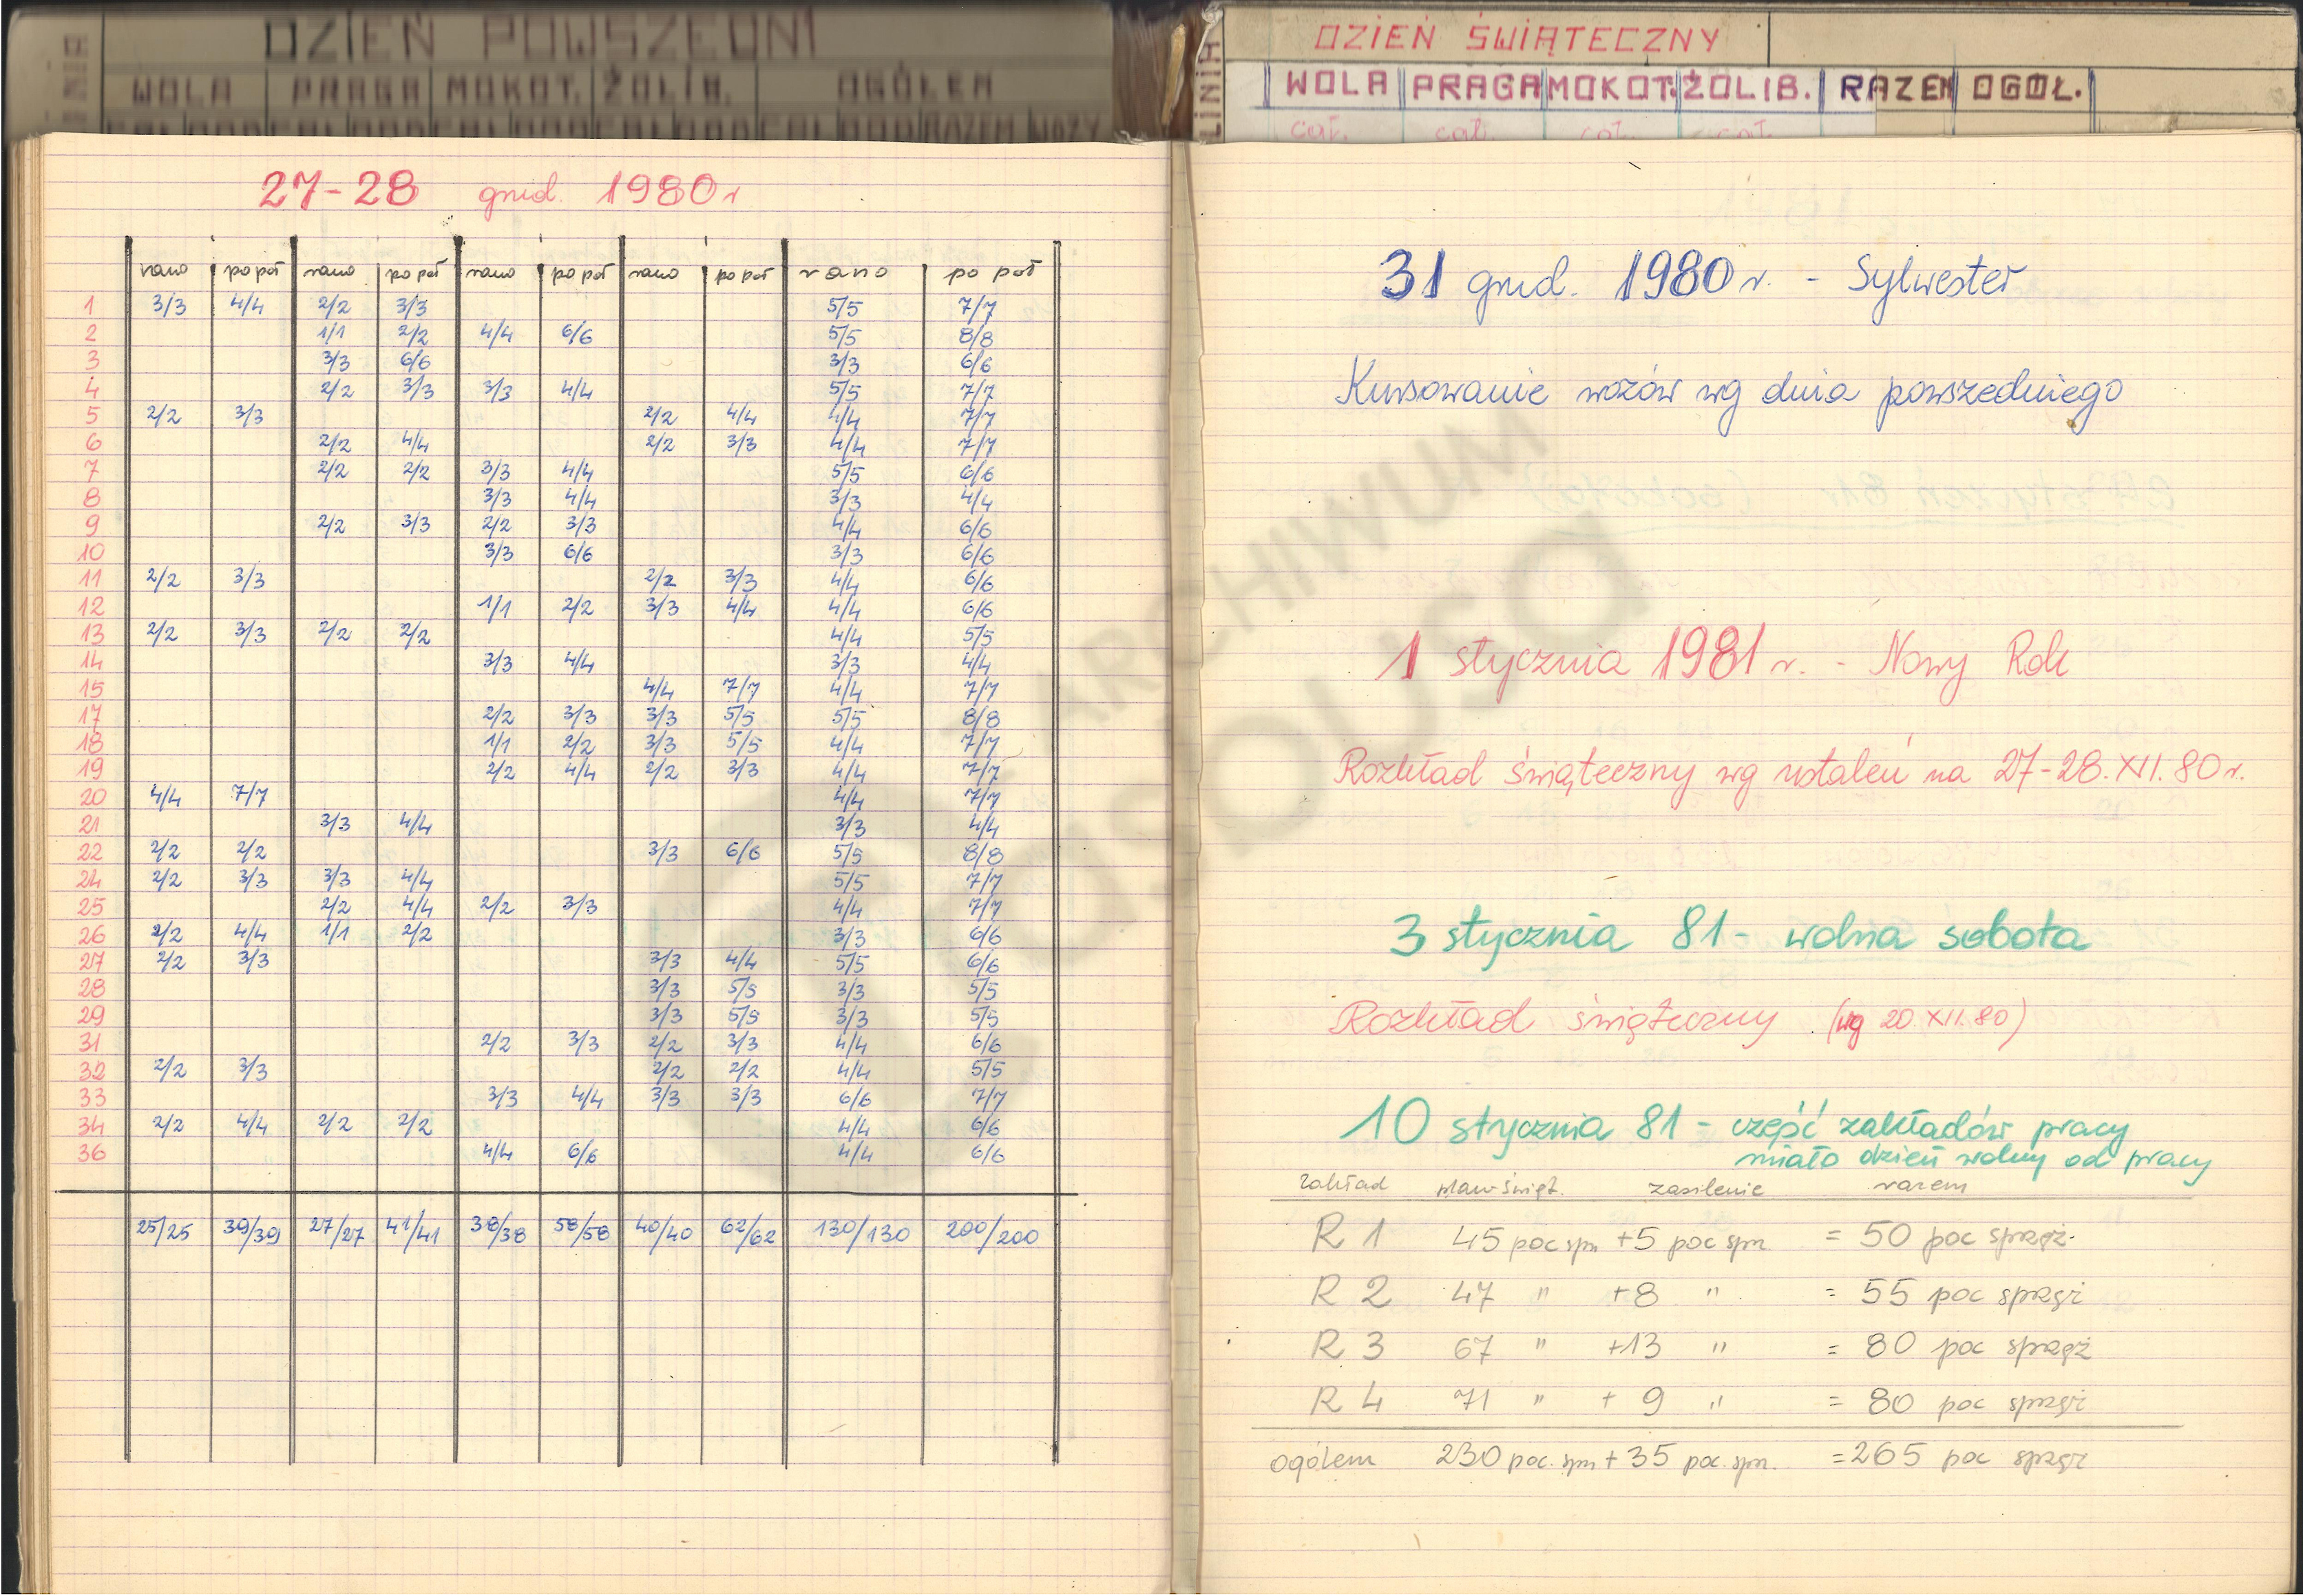 DZIEŃ POWSZEDNI
WOLA PRAGA MOKOT. ŻOLIB. OGÓŁEM
27-28 grud. 1980 r
rano po poł rano po poł rano po poł rano po poł rano po poł
1 3/3 4/4 2/2 3/3 5/5 7/7
2 1/1 2/2 4/4 6/6 5/5 8/8
3 3/3 6/6 3/3 6/6
4 2/2 3/3 3/3 4/4 5/5 7/7
5 2/2 3/3 2/2 4/4 4/4 7/7
6 2/2 4/4 2/2 3/3 4/4 7/7
7 2/2 2/2 3/3 4/4 5/5 6/6
8 3/3 4/4 3/3 4/4
9 2/2 3/3 2/2 3/3 4/4 6/6
10 3/3 6/6 3/3 6/6
11 2/2 3/3 2/2 3/3 4/4 6/6
12 1/1 2/2 3/3 4/4 4/4 6/6
13 2/2 3/3 2/2 2/2 4/4 5/5
14 3/3 4/4 3/3 4/4
15 4/4 7/7 4/4 7/7
17 2/2 3/3 3/3 5/5 5/5 8/8
18 1/1 2/2 3/3 5/5 4/4 7/7
19 2/2 4/4 2/2 3/3 4/4 7/7
20 4/4 7/7 4/4 7/7
21 3/3 4/4 3/3 4/4
22 2/2 2/2 3/3 6/6 5/5 8/8
24 2/2 3/3 3/3 4/4 5/5 7/7
25 2/2 4/4 2/2 3/3 4/4 7/7
26 2/2 4/4 1/1 2/2 3/3 6/6
27 2/2 3/3 3/3 4/4 5/5 6/6
28 3/3 5/5 3/3 5/5
29 3/3 5/5 3/3 5/5
31 2/2 3/3 2/2 3/3 4/4 6/6
32 2/2 3/3 2/2 2/2 4/4 5/5
33 3/3 4/4 3/3 3/3 6/6 7/7
34 2/2 4/4 2/2 2/2 4/4 6/6
36 4/4 6/6 4/4 6/6
25/25 39/39 27/27 41/41 38/38 58/58 40/40 62/62 130/130 200/200
LINIA
DZIEŃ ŚWIĄTECZNY
WOLA PRAGA MOKOT. ŻOLIB. RAZEM OGÓŁ.
cał. cał. cał. cał.
31 grud. 1980 r. - Sylwester
Kursowanie wozów wg dnia powszedniego
1 stycznia 1981 r. - Nowy Rok
Rozkład świąteczny wg ustaleń na 27-28.XII.80 r.
3 stycznia 81 - wolna sobota
Rozkład świąteczny (wg 20 XII.80)
10 stycznia 81 - część zakładów pracy
miało dzień wolny od pracy
zakład plan święt. zasilenie razem
R 1 45 poc spn +5 poc spn. = 50 poc sprzęż.
R 2 47 " +8 " = 55 poc sprzęż
R 3 67 " +13 " = 80 poc sprzęż
R 4 71 " + 9 " = 80 poc sprzęż
ogółem 230 poc. spn + 35 poc. spn. = 265 poc sprzęż
ARCHIWUM